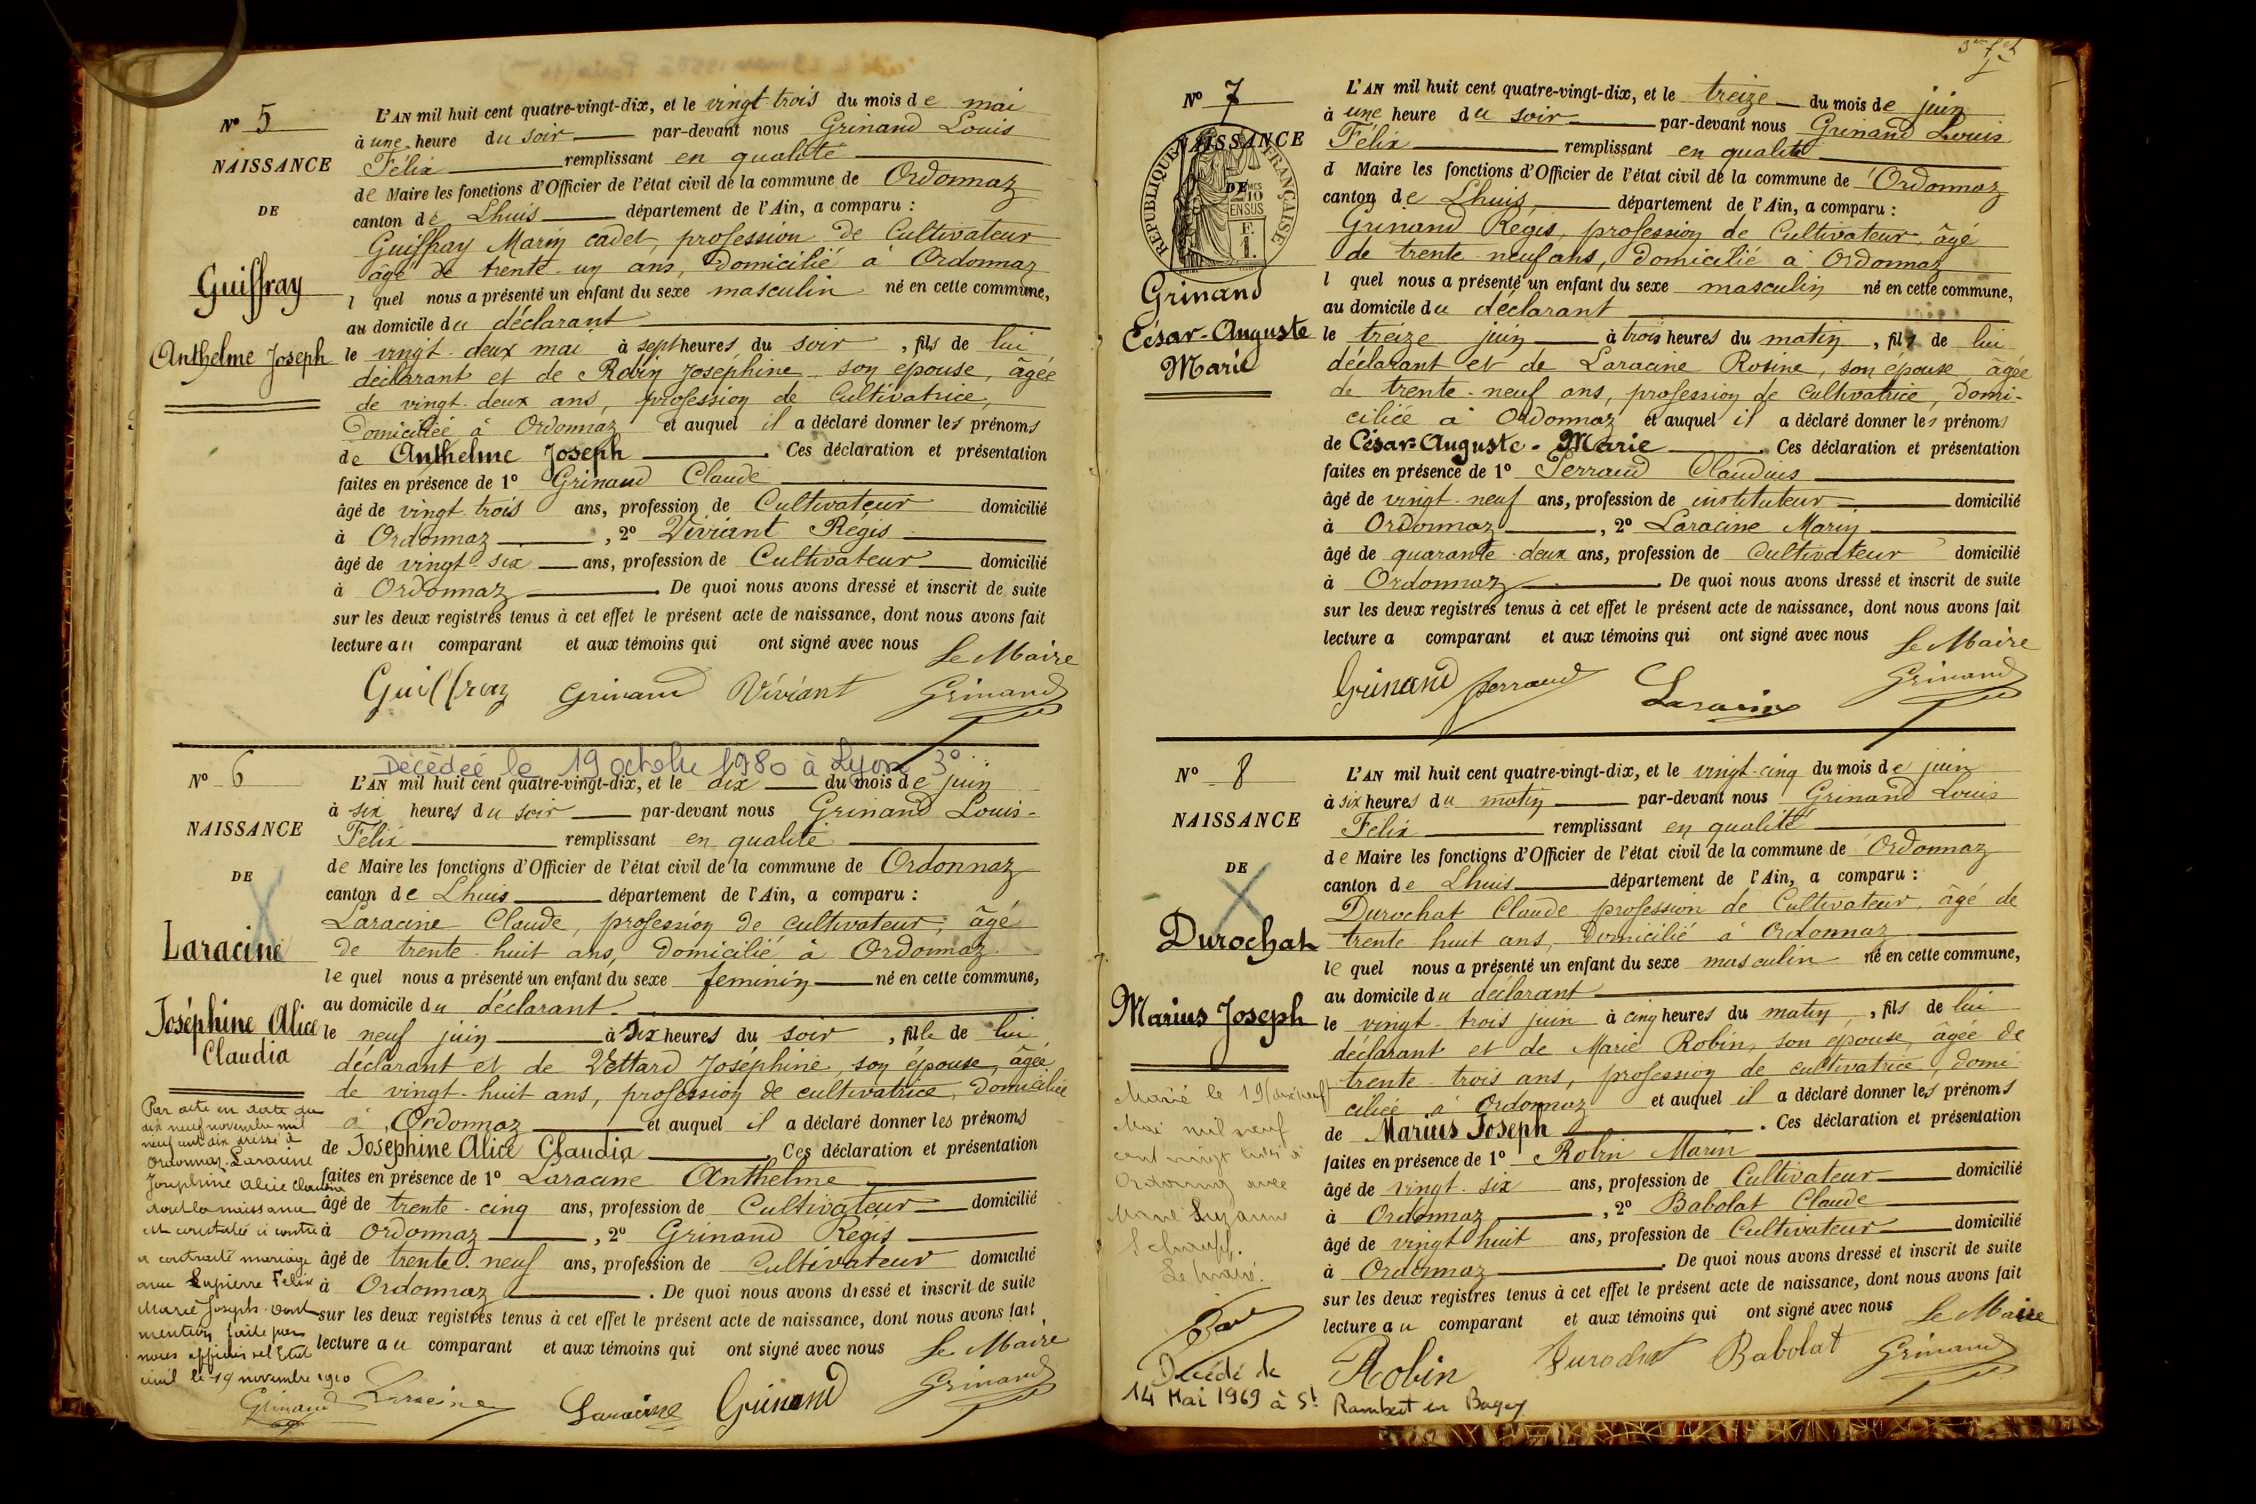 N° 5
NAISSANCE
DE
Guiffray
Anthelme Joseph
L'AN mil huit cent quatre-vingt-dix, et le vingt trois du mois de mai
à une heure du soir par-devant nous Grinand Louis
Félix remplissant en qualité
de Maire les fonctions d'Officier de l'état civil de la commune de Ordonnaz
canton de Lhuis département de l'Ain, a comparu :
Guiffray Marin cadet, profession de Cultivateur
âgé de trente-un ans, domicilié à Ordonnaz
l quel nous a présenté un enfant du sexe masculin né en cette commune,
au domicile du déclarant
le vingt-deux mai à sept heures du soir, fils de lui
déclarant et de Robin Joséphine son épouse, âgée
de vingt-deux ans, profession de Cultivatrice,
Domiciliée à Ordonnaz et auquel il a déclaré donner les prénoms
de Anthelme Joseph. Ces déclaration et présentation
faites en présence de 1° Grinand Claude
âgé de vingt-trois ans, profession de Cultivateur domicilié
à Ordonnaz, 2° Viviant Régis
âgé de vingt six ans, profession de Cultivateur domicilié
à Ordonnaz. De quoi nous avons dressé et inscrit de suite
sur les deux registres tenus à cet effet le présent acte de naissance, dont nous avons fait
lecture au comparant et aux témoins qui ont signé avec nous
Le Maire
Guiffray Grinand Viviant Grinand
Décédée le 19 octobre 1980 à Lyon 3°
N° 6
NAISSANCE
DE
Laracine
Joséphine Alice
Claudia
L'AN mil huit cent quatre-vingt-dix, et le dix du mois de juin
à six heures du soir par-devant nous Grinand Louis-
Félix remplissant en qualité
de Maire les fonctions d'Officier de l'état civil de la commune de Ordonnaz
canton de Lhuis département de l'Ain, a comparu :
Laracine Claude, profession de cultivateur, âgé
de trente-huit ans, domicilié à Ordonnaz
le quel nous a présenté un enfant du sexe féminin né en cette commune,
au domicile du déclarant.
le neuf juin à dix heures du soir, fille de lui
déclarant et de Vettard Joséphine, son épouse, âgée
de vingt-huit ans, profession de cultivatrice, domiciliée
à Ordonnaz et auquel il a déclaré donner les prénoms
de Joséphine Alice Claudia. Ces déclaration et présentation
faites en présence de 1° Laracine Anthelme
âgé de trente-cinq ans, profession de Cultivateur domicilié
à Ordonnaz, 2° Grinand Régis
âgé de trente-neuf ans, profession de Cultivateur domicilié
à Ordonnaz. De quoi nous avons dressé et inscrit de suite
sur les deux registres tenus à cet effet le présent acte de naissance, dont nous avons fait
lecture au comparant et aux témoins qui ont signé avec nous
Le Maire
Laracine Laracine Grinand Grinand
Par acte en date du
dix neuf novembre mil
neuf cent dix dressé à
Ordonnaz, Laracine
Joséphine Alice Claudia
dont la naissance
est constatée ci contre
a contracté mariage
avec Lapierre Félix
Marie Joseph. Dont
mention faite par
nous officier de l'Etat
civil le 19 novembre 1910
Grinand
N° 7
NAISSANCE
DE
RÉPUBLIQUE FRANÇAISE
10
EN SUS
F.
1.
Grinand
César-Auguste
Marie
L'AN mil huit cent quatre-vingt-dix, et le treize du mois de juin
à une heure du soir par-devant nous Grinand Louis
Félix remplissant en qualité
d Maire les fonctions d'Officier de l'état civil de la commune de Ordonnaz
canton de Lhuis, département de l'Ain, a comparu :
Grinand Régis, profession de Cultivateur, âgé
de trente-neuf ans, domicilié à Ordonnaz
l quel nous a présenté un enfant du sexe masculin né en cette commune,
au domicile du déclarant
le treize juin à trois heures du matin, fils de lui
déclarant et de Laracine Rosine, son épouse, âgée
de trente-neuf ans, profession de Cultivatrice, domi-
ciliée à Ordonnaz et auquel il a déclaré donner les prénoms
de César-Auguste-Marie. Ces déclaration et présentation
faites en présence de 1° Perraud Claudius
âgé de vingt-neuf ans, profession de instituteur domicilié
à Ordonnaz, 2° Laracine Marin
âgé de quarante-deux ans, profession de Cultivateur domicilié
à Ordonnaz. De quoi nous avons dressé et inscrit de suite
sur les deux registres tenus à cet effet le présent acte de naissance, dont nous avons fait
lecture a comparant et aux témoins qui ont signé avec nous
Le Maire
Grinand Perraud Laracine Grinand
N° 8
NAISSANCE
DE
Durochat
Marius Joseph
L'AN mil huit cent quatre-vingt-dix, et le vingt-cinq du mois de juin
à six heures du matin par-devant nous Grinand Louis
Félix remplissant en qualité
de Maire les fonctions d'Officier de l'état civil de la commune de Ordonnaz
canton de Lhuis département de l'Ain, a comparu :
Durochat Claude profession de Cultivateur, âgé de
trente huit ans, domicilié à Ordonnaz
le quel nous a présenté un enfant du sexe masculin né en cette commune,
au domicile du déclarant
le vingt-trois juin à cinq heures du matin, fils de lui
déclarant et de Marie Robin, son épouse, âgée de
trente-trois ans, profession de cultivatrice, domi
ciliée à Ordonnaz et auquel il a déclaré donner les prénoms
de Marius Joseph. Ces déclaration et présentation
faites en présence de 1° Robin Marin
âgé de vingt-six ans, profession de Cultivateur domicilié
à Ordonnaz, 2° Babolat Claude
âgé de vingt huit ans, profession de Cultivateur domicilié
à Ordonnaz. De quoi nous avons dressé et inscrit de suite
sur les deux registres tenus à cet effet le présent acte de naissance, dont nous avons fait
lecture au comparant et aux témoins qui ont signé avec nous
Le Maire
Robin Durochat Babolat Grinand
Marié le 19 (dix neuf
Mai mil neuf
cent vingt à
Ordonnaz avec
Marie Suzanne
Le Maire.
Décédé le
14 Mai 1969 à St Rambert en Bugey